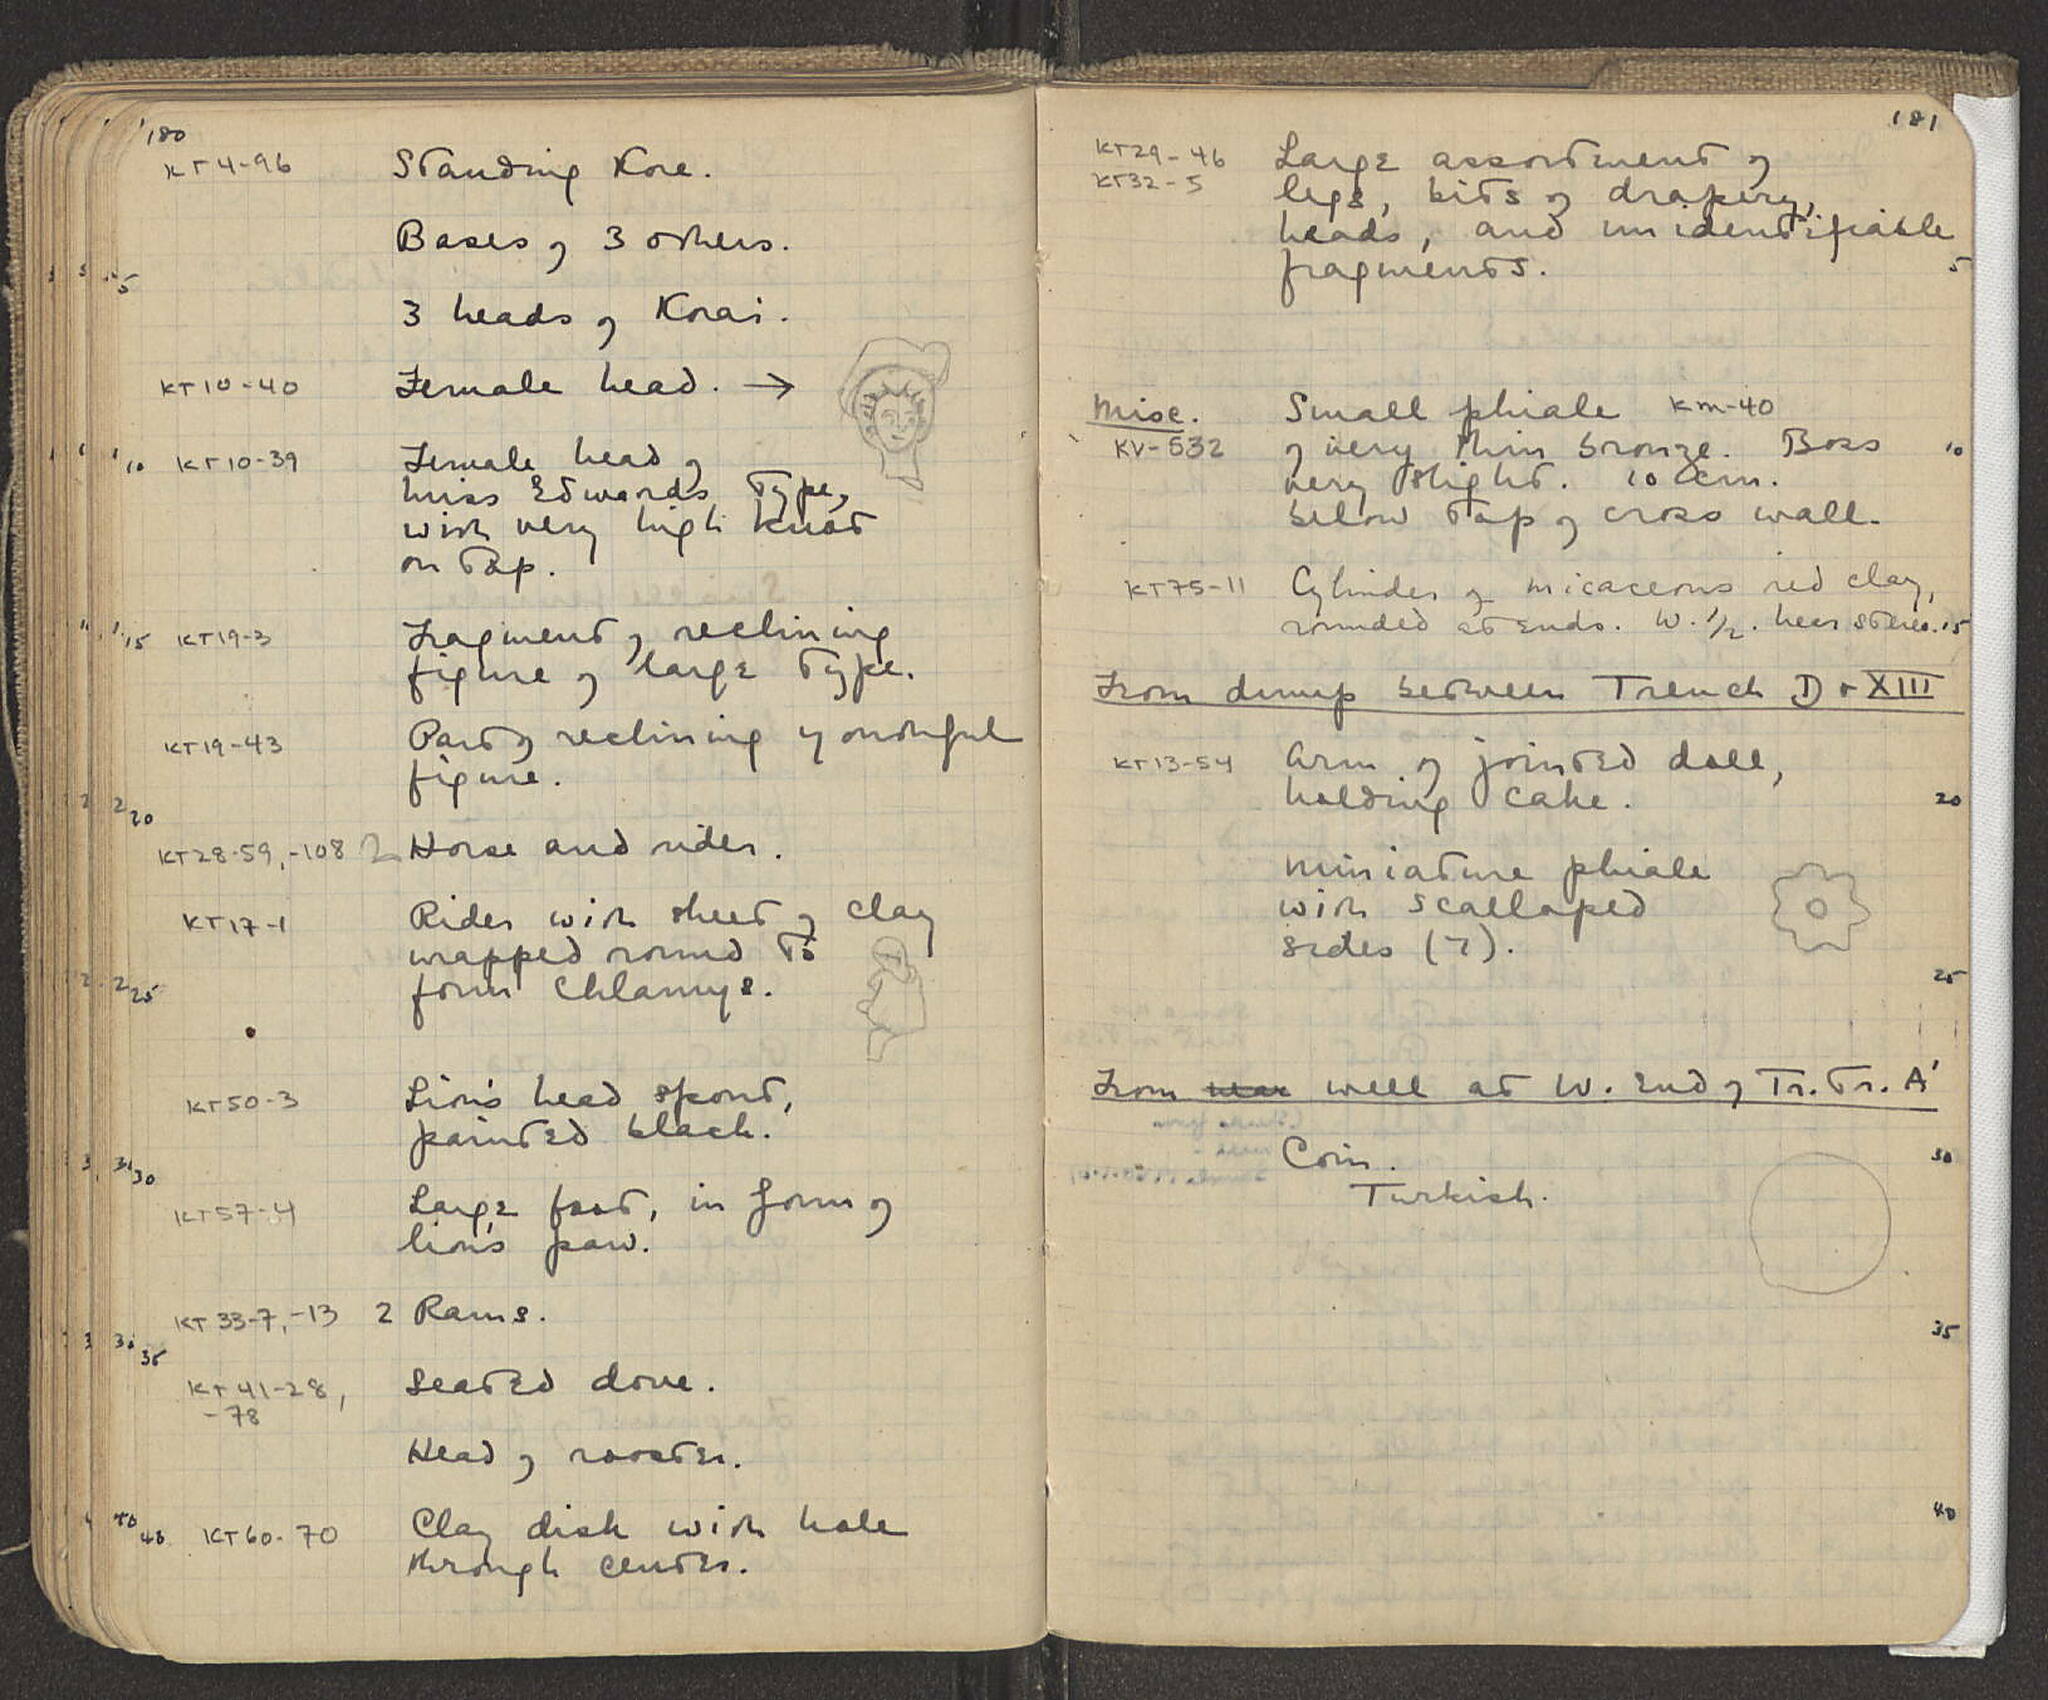 180
KT4-96 Standing Kore.
Bases of 3 others.
5
3 heads of Korai.
KT10-40 Female head. →
10 KT10-39 Female head of
Miss Edwards Type,
with very high knot
on top.
15 KT19-3 Fragment of reclining
figure of large type.
KT19-43 Part of reclining youthful
figure.
20
KT28-59, -108 2 Horse and rider.
KT17-1 Rider with sheet of clay
wrapped round to
25 form chlamys.
KT50-3 Lion's head spout,
painted black.
30
KT57-4 Large foot, in form of
lion's paw.
KT33-7, -13 2 Rams.
35
KT41-28, Seated dove.
-78
Head of rooster.
40 KT60-70 Clay disk with hole
through center.
181
KT29-46 Large assortment of
KT32-5 legs, bits of drapery,
heads, and unidentifiable
fragments. 5
Misc. Small phiale KM-40
KV-532 of very thin bronze. Boss 10
very slight. 10 cm.
below top of cross wall.
KT75-11 Cylinder of micaceous red clay,
rounded at ends. W. 1/2. near stereo. 15
From dump between Trench D + XIII
KT13-54 Arm of jointed doll,
holding cake. 20
Miniature phiale
with scalloped
sides (7).
25
From well at W. End of Tr. Tr. A'
Coin. 30
Turkish.
35
40